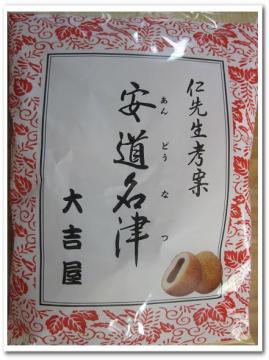 仁先生考案
安道名津
あんどうなつ
大吉屋